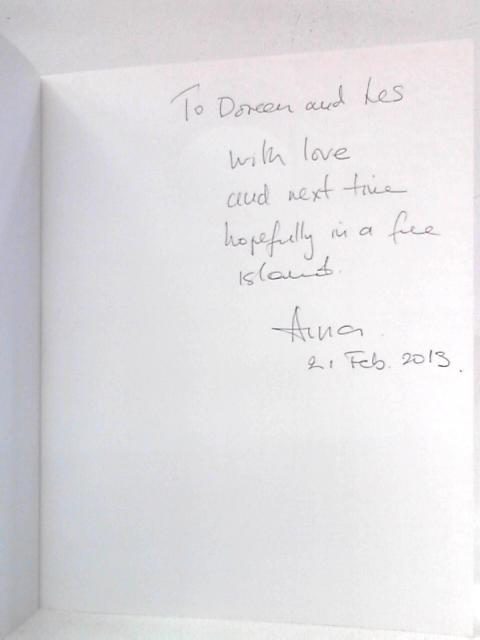 To Doreen and Les
with love
and next time
hopefully in a free
island.
Anna.
21 Feb. 2013.